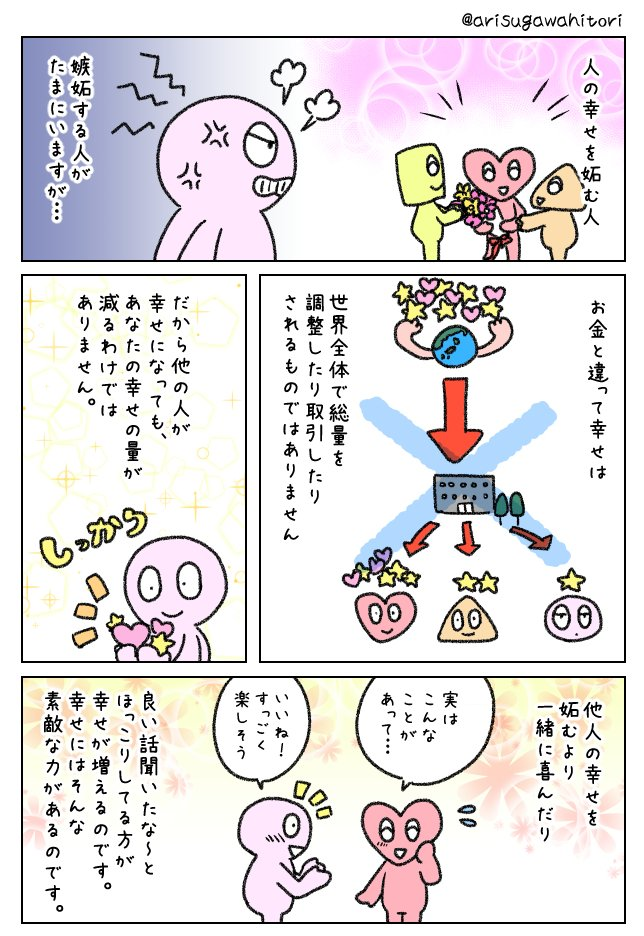 @arisugawahitori
人の幸せを妬む人
嫉妬する人が
たまにいますが…
お金と違って幸せは
世界全体で総量を
調整したり取引したり
されるものではありません
だから他の人が
幸せになっても、
あなたの幸せの量が
減るわけでは
ありません。
しっかり
他人の幸せを
妬むより
一緒に喜んだり
実は
こんな
ことが
あって…
いいね!
すっごく
楽しそう
良い話聞いたな〜と
ほっこりしてる方が
幸せが増えるのです。
幸せにはそんな
素敵な力があるのです。